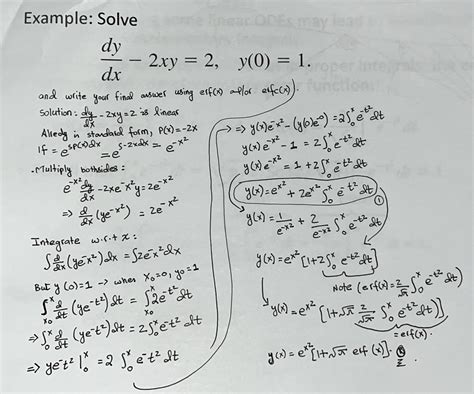 Example: Solve
dy/dx − 2xy = 2, y(0) = 1.
and write your final answer using erf(x) and/or erfc(x)
Solution: dy/dx - 2xy = 2 is linear
Already in standard form, P(x) = -2x
If = e^∫P(x)dx = e^∫-2xdx = e^-x²
• Multiply bothsides:
e^-x² dy/dx - 2xe^-x² y = 2e^-x²
⇒ d/dx (ye^-x²) = 2e^-x²
Integrate w.r.t x:
∫ d/dx (ye^-x²) dx = ∫2e^-x² dx
But y(0) = 1 → when x₀=0, y₀=1
∫_x₀^x d/dt (ye^-t²) dt = ∫_x₀^x 2e^-t² dt
⇒ ∫_0^x d/dt (ye^-t²) dt = 2∫_0^x e^-t² dt
⇒ ye^-t² |_0^x = 2 ∫_0^x e^-t² dt
⇒ y(x)e^-x² - (y(0)e^-0) = 2∫_0^x e^-t² dt
y(x)e^-x² - 1 = 2∫_0^x e^-t² dt
y(x)e^-x² = 1 + 2∫_0^x e^-t² dt
y(x) = e^x² + 2e^x² ∫_0^x e^-t² dt ①
y(x) = 1/e^-x² + 2/e^-x² ∫_0^x e^-t² dt
y(x) = e^x² [1 + 2∫_0^x e^-t² dt]
Note (erf(x) = 2/√π ∫_0^x e^-t² dt
y(x) = e^x² [1 + √π (2/√π ∫_0^x e^-t² dt)]
= erf(x).
y(x) = e^x² [1 + √π erf(x)].